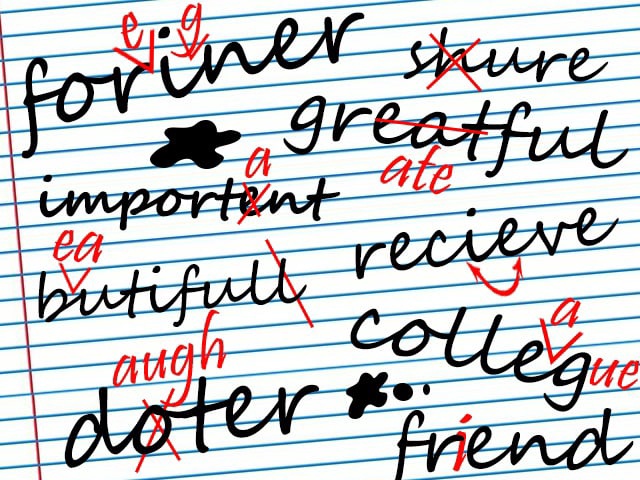 e g
foriner
shure
greatful
ate
a
importent
ea
butifull
recieve
a
collegue
augh
doter
friend